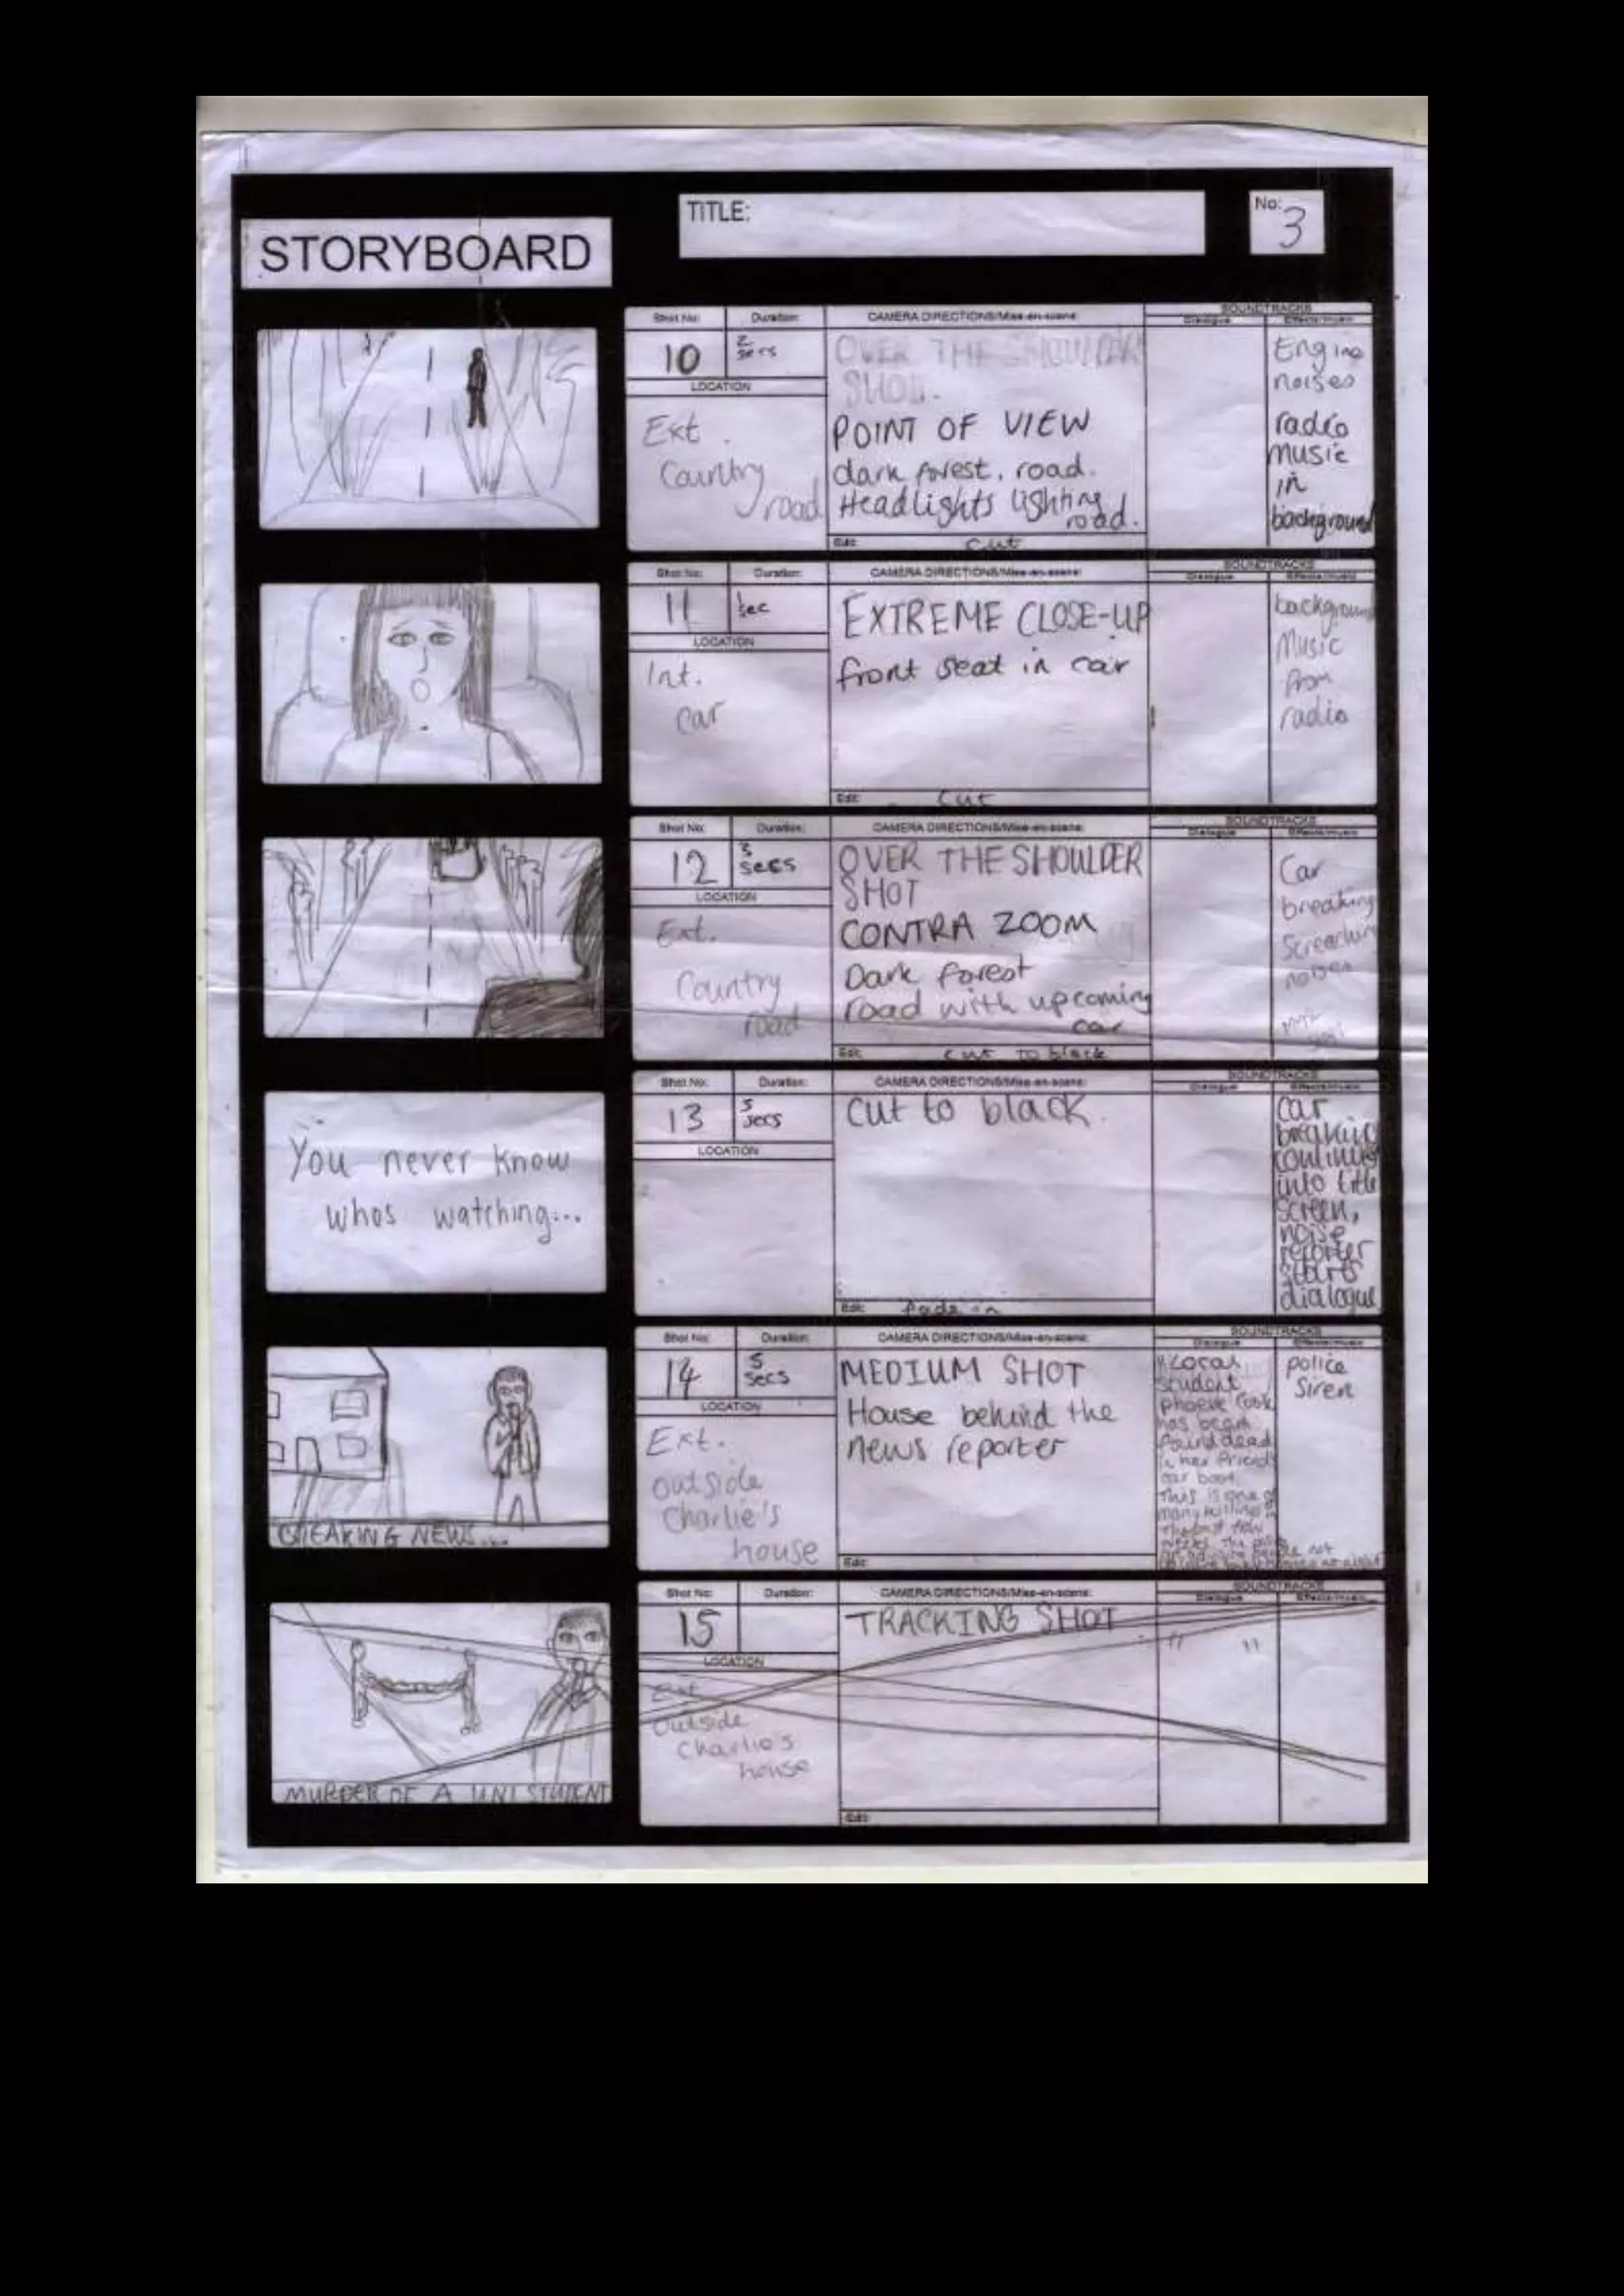 STORYBOARD
TITLE:
No:
3
Shot No:
Duration:
CAMERA DIRECTIONS/Mise-en-scene:
SOUNDTRACKS
Dialogue
Effects/music
10
2
secs
LOCATION
Ext.
Country
road
OVER THE SHOULDER
SHOT.
POINT OF VIEW
dark forest, road.
Headlights lighting
road.
Edit:
cut
Engine
noises
radio
music
in
background
Shot No:
Duration:
CAMERA DIRECTIONS/Mise-en-scene:
SOUNDTRACKS
Dialogue
Effects/music
11
1
sec
LOCATION
Int.
car
EXTREME CLOSE-UP
front seat in car
Edit:
cut
background
Music
from
radio
Shot No:
Duration:
CAMERA DIRECTIONS/Mise-en-scene:
SOUNDTRACKS
Dialogue
Effects/music
12
3
secs
LOCATION
Ext.
Country
road
OVER THE SHOULDER
SHOT
CONTRA ZOOM
Dark forest
road with upcoming
car
Edit:
cut to black
Car
breaking
noises
You never know
whos watching...
Shot No:
Duration:
CAMERA DIRECTIONS/Mise-en-scene:
SOUNDTRACKS
Dialogue
Effects/music
13
secs
LOCATION
cut to black.
Edit:
fade in
car
breaking
continues
into title
screen,
noise
reporter
starts
dialogue
BREAKING NEWS...
Shot No:
Duration:
CAMERA DIRECTIONS/Mise-en-scene:
SOUNDTRACKS
Dialogue
Effects/music
14
5
secs
LOCATION
Ext.
outside
Charlie's
house
MEDIUM SHOT
House behind the
news reporter
Edit:
Local
student
phoebe Cook
has been
found dead
in her friends
car boot.
This is one of
many killings in
the past few
weeks. The police
police
Siren
MURDER OF A UNI STUDENT
Shot No:
Duration:
CAMERA DIRECTIONS/Mise-en-scene:
SOUNDTRACKS
Dialogue
Effects/music
15
LOCATION
Ext
Outside
Charlie's
house
TRACKING SHOT
Edit:
" "